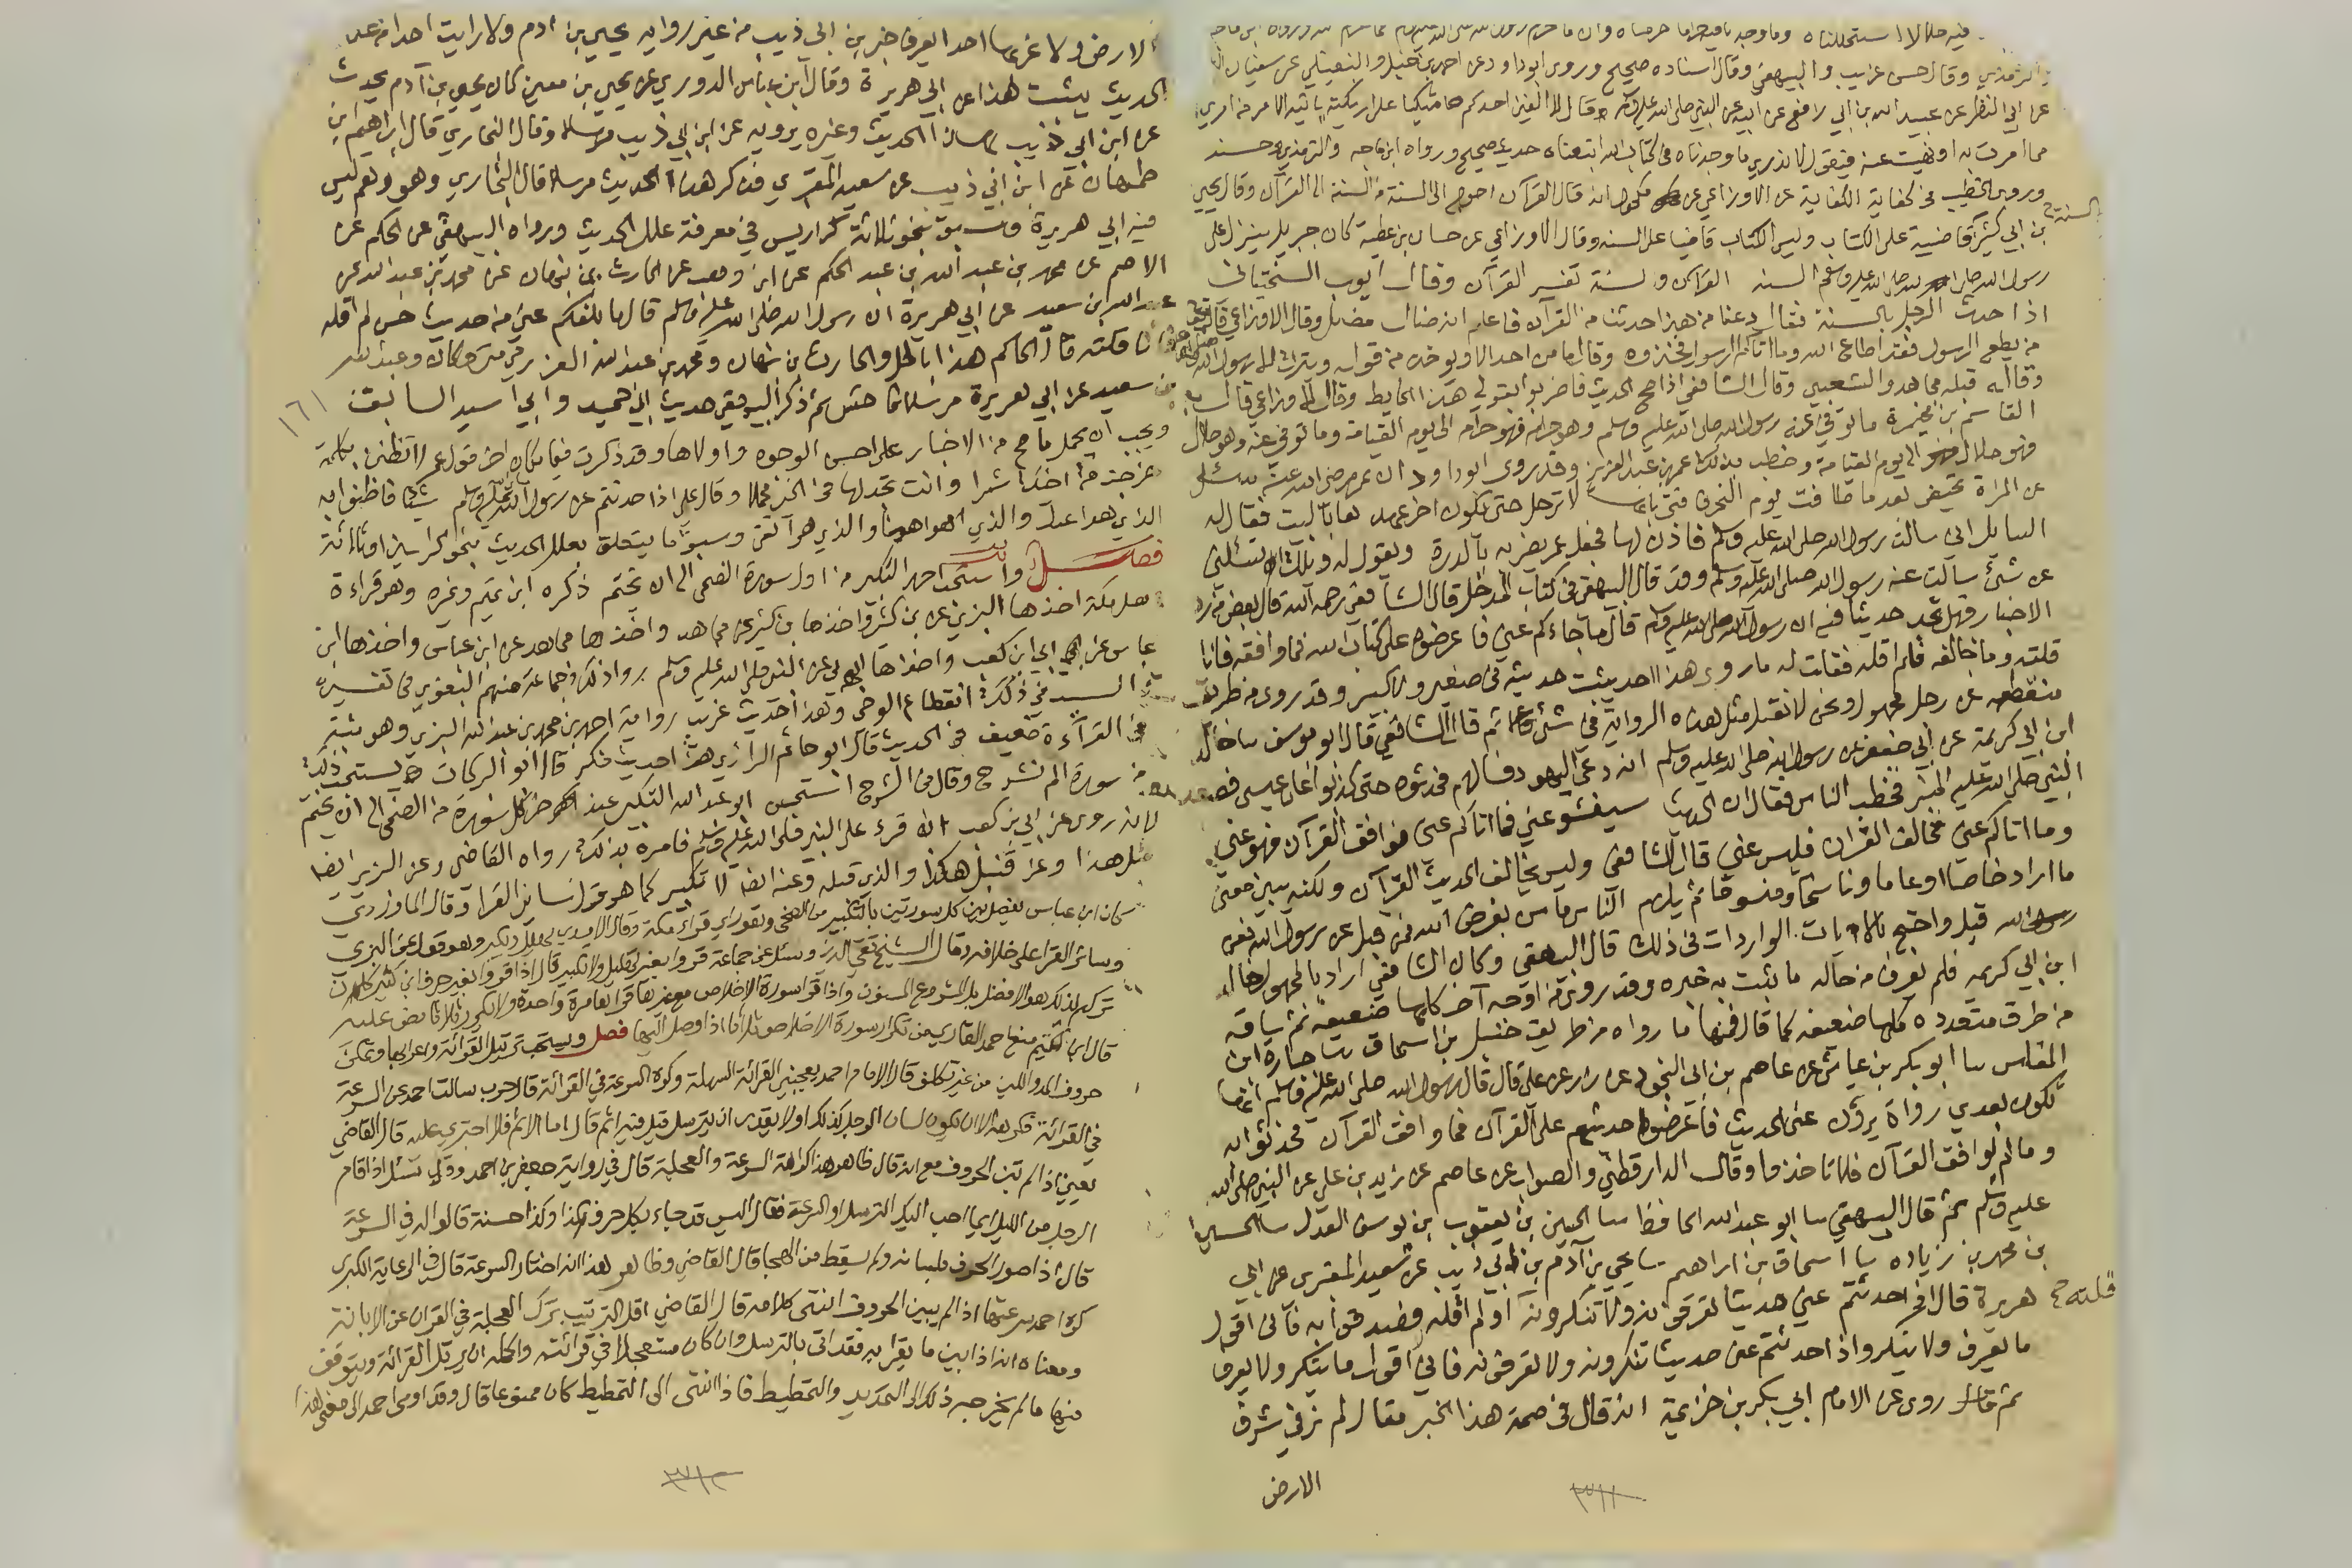 فيه حلالا استحللناه وما وجدنا فيه حراما حرمناه وان ما حرم رسول الله صلى الله عليه وسلم كما حرم الله ورواه ابن ماجه
والترمذي وقال حسن غريب والبيهقي وقال اسناده صحيح وروى ابو داود عن احمد بن حنبل والنفيلي عن سفيان
عن ابي النضر عن عبيد الله بن ابي رافع عن ابيه عن النبي صلى الله عليه وسلم قال لا الفين احدكم متكيا على اريكته ياتيه الامر من امري
مما امرت به او نهيت عنه فيقول لا ندري ما وجدناه في كتاب الله اتبعناه حديث صحيح ورواه ابن ماجه والترمذي وحسنه
وروى الخطيب في الكفاية عن الاوزاعي عن مكحول انه قال القرآن احوج الى السنة من السنة الى القرآن وقال يحيى
بن ابي كثير السنة قاضية على الكتاب وليس الكتاب قاضيا على السنه وقال الاوزاعي عن حسان بن عطية كان جبريل ينزل على
رسول الله صلى الله عليه وسلم السنه القرآن والسنة تفسر القرآن وقال ايوب السختياني
اذا حدثت الرجل بالسنة فقال دعنا من هذا حدثنا من القرآن فاعلم انه ضال مضل وقال الاوزاعي قال الله تعالى
من يطع الرسول فقد اطاع الله وما اتاكم الرسول فخذوه وقال ما من احد الا ويوخذ من قوله ويترك الا رسول الله
وقاله قبله مجاهد والشعبي وقال الشافعي اذا صح الحديث فاضربوا بقولي هذا الحايط وقال الاوزاعي قال
القاسم بن مخيمرة ما توفي عنه رسول الله صلى الله عليه وسلم وهو حرام فهو حرام الى يوم القيامة وما توفي عنه وهو حلال
فهو حلال الى يوم القيامة وخطب بذلك عمر بن عبد العزيز وقد روى ابو داود ان عمر رضي الله عنه سئل
عن المراة تحيض بعد ما طافت يوم النحر فافتى بانها لا ترحل حتى يكون اخر عهدها بالبيت فقال له
السايل اني سالت رسول الله صلى الله عليه وسلم فاذن لها فجعل عمر يضربه بالدرة ويقول له ويلك تسئلني
عن شئ سالت عنه رسول الله صلى الله عليه وسلم وقد قال البيهقي في كتاب المدخل قال الشافعي رحمه الله قال بعض من رد
الاخبار فهل تجد حديثا فيه ان رسول الله صلى الله عليه وسلم قال ما جاءكم عني فاعرضوه على كتاب الله فما وافقه فانا
قلته وما خالفه فلم اقله فقلت له ما روى هذا احد يثبت حديثه في صغير ولا كبير وقد روى من طريق
منقطعه عن رجل مجهول ونحن لا نقبل مثل هذه الرواية في شئ ثم قال الشافعي قال ابو يوسف ثنا خالد
ابن ابي كريمة عن ابي جعفر عن رسول الله صلى الله عليه وسلم انه دعى اليهود فسالهم فحدثوه حتى كذبوا على عيسى فصعد
النبي صلى الله عليه المنبر فخطب الناس فقال ان الحديث سيفشو عني فما اتاكم عني فوافق القرآن فهو عني
وما اتاكم عني مخالف القران فليس عني قال الشافعي وليس يخالف الحديث القرآن ولكنه يبين معنى
ما اراد خاصا او عاما وناسخا ومنسوخا ثم يلزم الناس ما سن بفرض الله فمن قبل عن رسول الله فعن
الله قبل واحتج بالآيات الواردات في ذلك قال البيهقي وكان الشافعي اراد بالمجهول خالد
ابن ابي كريمه فلم يعرف من حاله ما يثبت به خبره وقد روي من اوجه آخر كلها ضعيفه ثم ساقه
من طرق متعدده كلها ضعيفه كما قال فمنها ما رواه من طريق حنبل بن اسحاق ثنا جباره ابن
المغلس ثنا ابو بكر بن عياش عن عاصم بن ابي النجود عن زر عن علي قال قال رسول الله صلى الله عليه وسلم انها
تكون بعدي رواة يروون عني الحديث فاعرضوا حديثهم على القرآن فما وافق القرآن فحدثوا به
وما لم يوافق القرآن فلا تاخذوا به وقال الدارقطني والصواب عن عاصم عن زيد بن علي عن النبي صلى الله
عليه وسلم ثم قال البيهقي ثنا ابو عبد الله الحافظ ثنا الحسين بن يعقوب بن يوسف العدل ثنا الحسين
بن محمد بن زياده ثنا اسحاق بن ابراهيم ثنا يحيى بن آدم بن ابي ذيب عن سعيد المقبري عن ابي
هريرة قال اذا حدثتم عني حديثا تعرفونه ولا تنكرونه قلته او لم اقله فصدقوا به فاني اقول
ما يعرف ولا ينكر واذا حدثتم عني حديثا تنكرونه ولا تعرفونه فاني لا اقول ما ينكر ولا يعرف
ثم قال روى عن الامام ابي بكر بن خزيمة انه قال في صحة هذا الخبر مقال لم نر في شرق
الارض
٣٧١١
الارض ولا غربها احد يعرف خبر بن ابي ذيب من غير رواية يحيى بن ادم ولا رايت احدا من علماء
الحديث يثبت هذا عن ابي هريرة وقال ابن عباس الدوري عن يحيى بن معين كان يحيى بن آدم يحدث
عن ابن ابي ذيب هذا الحديث وغيره يرويه عن ابن ابي ذيب مرسلا وقال البخاري قال ابراهيم ابن
طهمان عن ابن ابي ذيب عن سعيد المقبري فذكر هذا الحديث مرسلا قال البخاري وهو وهم ليس
فيه ابي هريرة وسبق بنحو ثلاثة كراريس في معرفة علل الحديث ورواه البيهقي عن الحكم عن
الاصم عن محمد بن عبد الله بن عبد الحكم عن ابن وهب عن الحارث بن نبهان عن محمد بن عبد الله عن
عبد الله بن سعيد عن ابي هريرة ان رسول الله صلى الله عليه وسلم قال ما بلغكم عني من حديث حسن لم اقله
فانا قلته قال الحاكم هذا باطل والحارث بن نبهان ومحمد بن عبد الله العزرمي متروكان وعبد الله
بن سعيد عن ابي هريرة مرسل ثم ذكر البيهقي حديث ابي حميد وابي اسيد السابق
١٦١
ويجب ان يحمل ما صح من الاخبار على احسن الوجوه واولاها وقد ذكرت فيما كان اخر قول عمر لا تظنن بكلمة
خرجت من اخيك شرا وانت تجد لها في الخير محملا وقال علي اذا حدثتم عن رسول الله صلى الله عليه وسلم شيئا فاظنوا به
الذي هو اعدل والذي هو اهنا والذي هو اتقى وسبق ما يتعلق بعلل الحديث بنحو كراسين او ثلاثة
فصل واستحب احمد التكبير من اول سورة الضحى الى ان يختم ذكره ابن تميم وغيره وهو قراءة
اهل مكة اخذها البزي عن بن كثير واخذها بن كثير عن مجاهد واخذها مجاهد عن ابن عباس واخذها ابن
عباس عن ابي ابن كعب واخذها ابي عن النبي صلى الله عليه وسلم روا ذلك جماعة منهم البغوي في تفسيره
السبب في ذلك انقطاع الوحي وهذا حديث غريب رواية احمد بن محمد بن عبد الله البزي وهو ثبت
في القرآءة ضعيف في الحديث قال ابو حاتم الرازي هذا حديث منكر قال ابو البركات يستحب ذلك
من سورة الم نشرح وقال في الشرح استحسن ابو عبد الله التكبير عند اخر كل سورة من الضحى الى ان يختم
لانه روى عن ابي بن كعب انه قرء على النبي صلى الله عليه وسلم فامره بذلك رواه القاضي وعن البزي ايضا
مثل هذا وعن قنبل هكذا والذي قبله وعنه ايضا لا تكبير كما هو قول سائر القرا وقال الماوردي
كان ابن عباس يفصل بين كل سورتين بالتكبير من الضحى وهو راي قراء مكة وقال الامدي يهلل ويكبر وهو قول عن البزي
وسائر القرا على خلافه وقال الشيخ تقي الدين وسئل عن جماعة قروا بغير تهليل ولا تكبير قال اذا قروا بغير حرف ابن كثير كان
تركهم لذلك هو الافضل بل المشروع المسنون واذا قرا سورة الاخلاص مع غيرها قرا مرة واحدة ولا يكررها ثلاثا نص عليه
قال ابن تميم منع احمد القاري من تكرار سورة الاخلاص ثلاثا اذا وصل اليها فصل ويستحب ترتيل القرائة واعرابها وتمكين
حروف المد واللين من غير تكلف قال الامام احمد يعجبني القرائة السهلة وكره السرعة في القرائة قال حرب سالت احمد عن السرعة
في القرائة فكرهه الا ان يكون لسان الرجل كذلك او لا يقدر ان يترسل قيل فيه اثم قال اما الاثم فلا اجترئ عليه قال القاضي
يعني اذا لم تبن الحروف مع انه قال ظاهر هذا كراهة السرعة والعجلة قال في رواية جعفر بن احمد وقد سئل اذا قام
الرجل من الليل ايما احب اليك الترسل او السرعة فقال اليس قد جاء بكل حرف كذا وكذا حسنة قالوا له في السرعة
قال اذا صور الحرف بلسانه ولم يسقط من الهجا قال القاضي وظاهر هذا انه اختار السرعة قال في الرعاية الكبرى
كره احمد سرعتها اذا لم يبين الحروف انتهى كلامه قال القاضي اقل الترتيب ترك العجلة في القران عن الابانة
ومعناه انه اذا بين ما يقرا به فقد اتى بالترسل وان كان مستعجلا في قرائته واكمله ان يرتل القرائة ويتوقف
فيها ما لم يخرجه ذلك الى التمديد والتمطيط فاذا انتهى الى التمطيط كان ممنوعا قال وقد اومى احمد الى معنى هذا
٣٧١٢